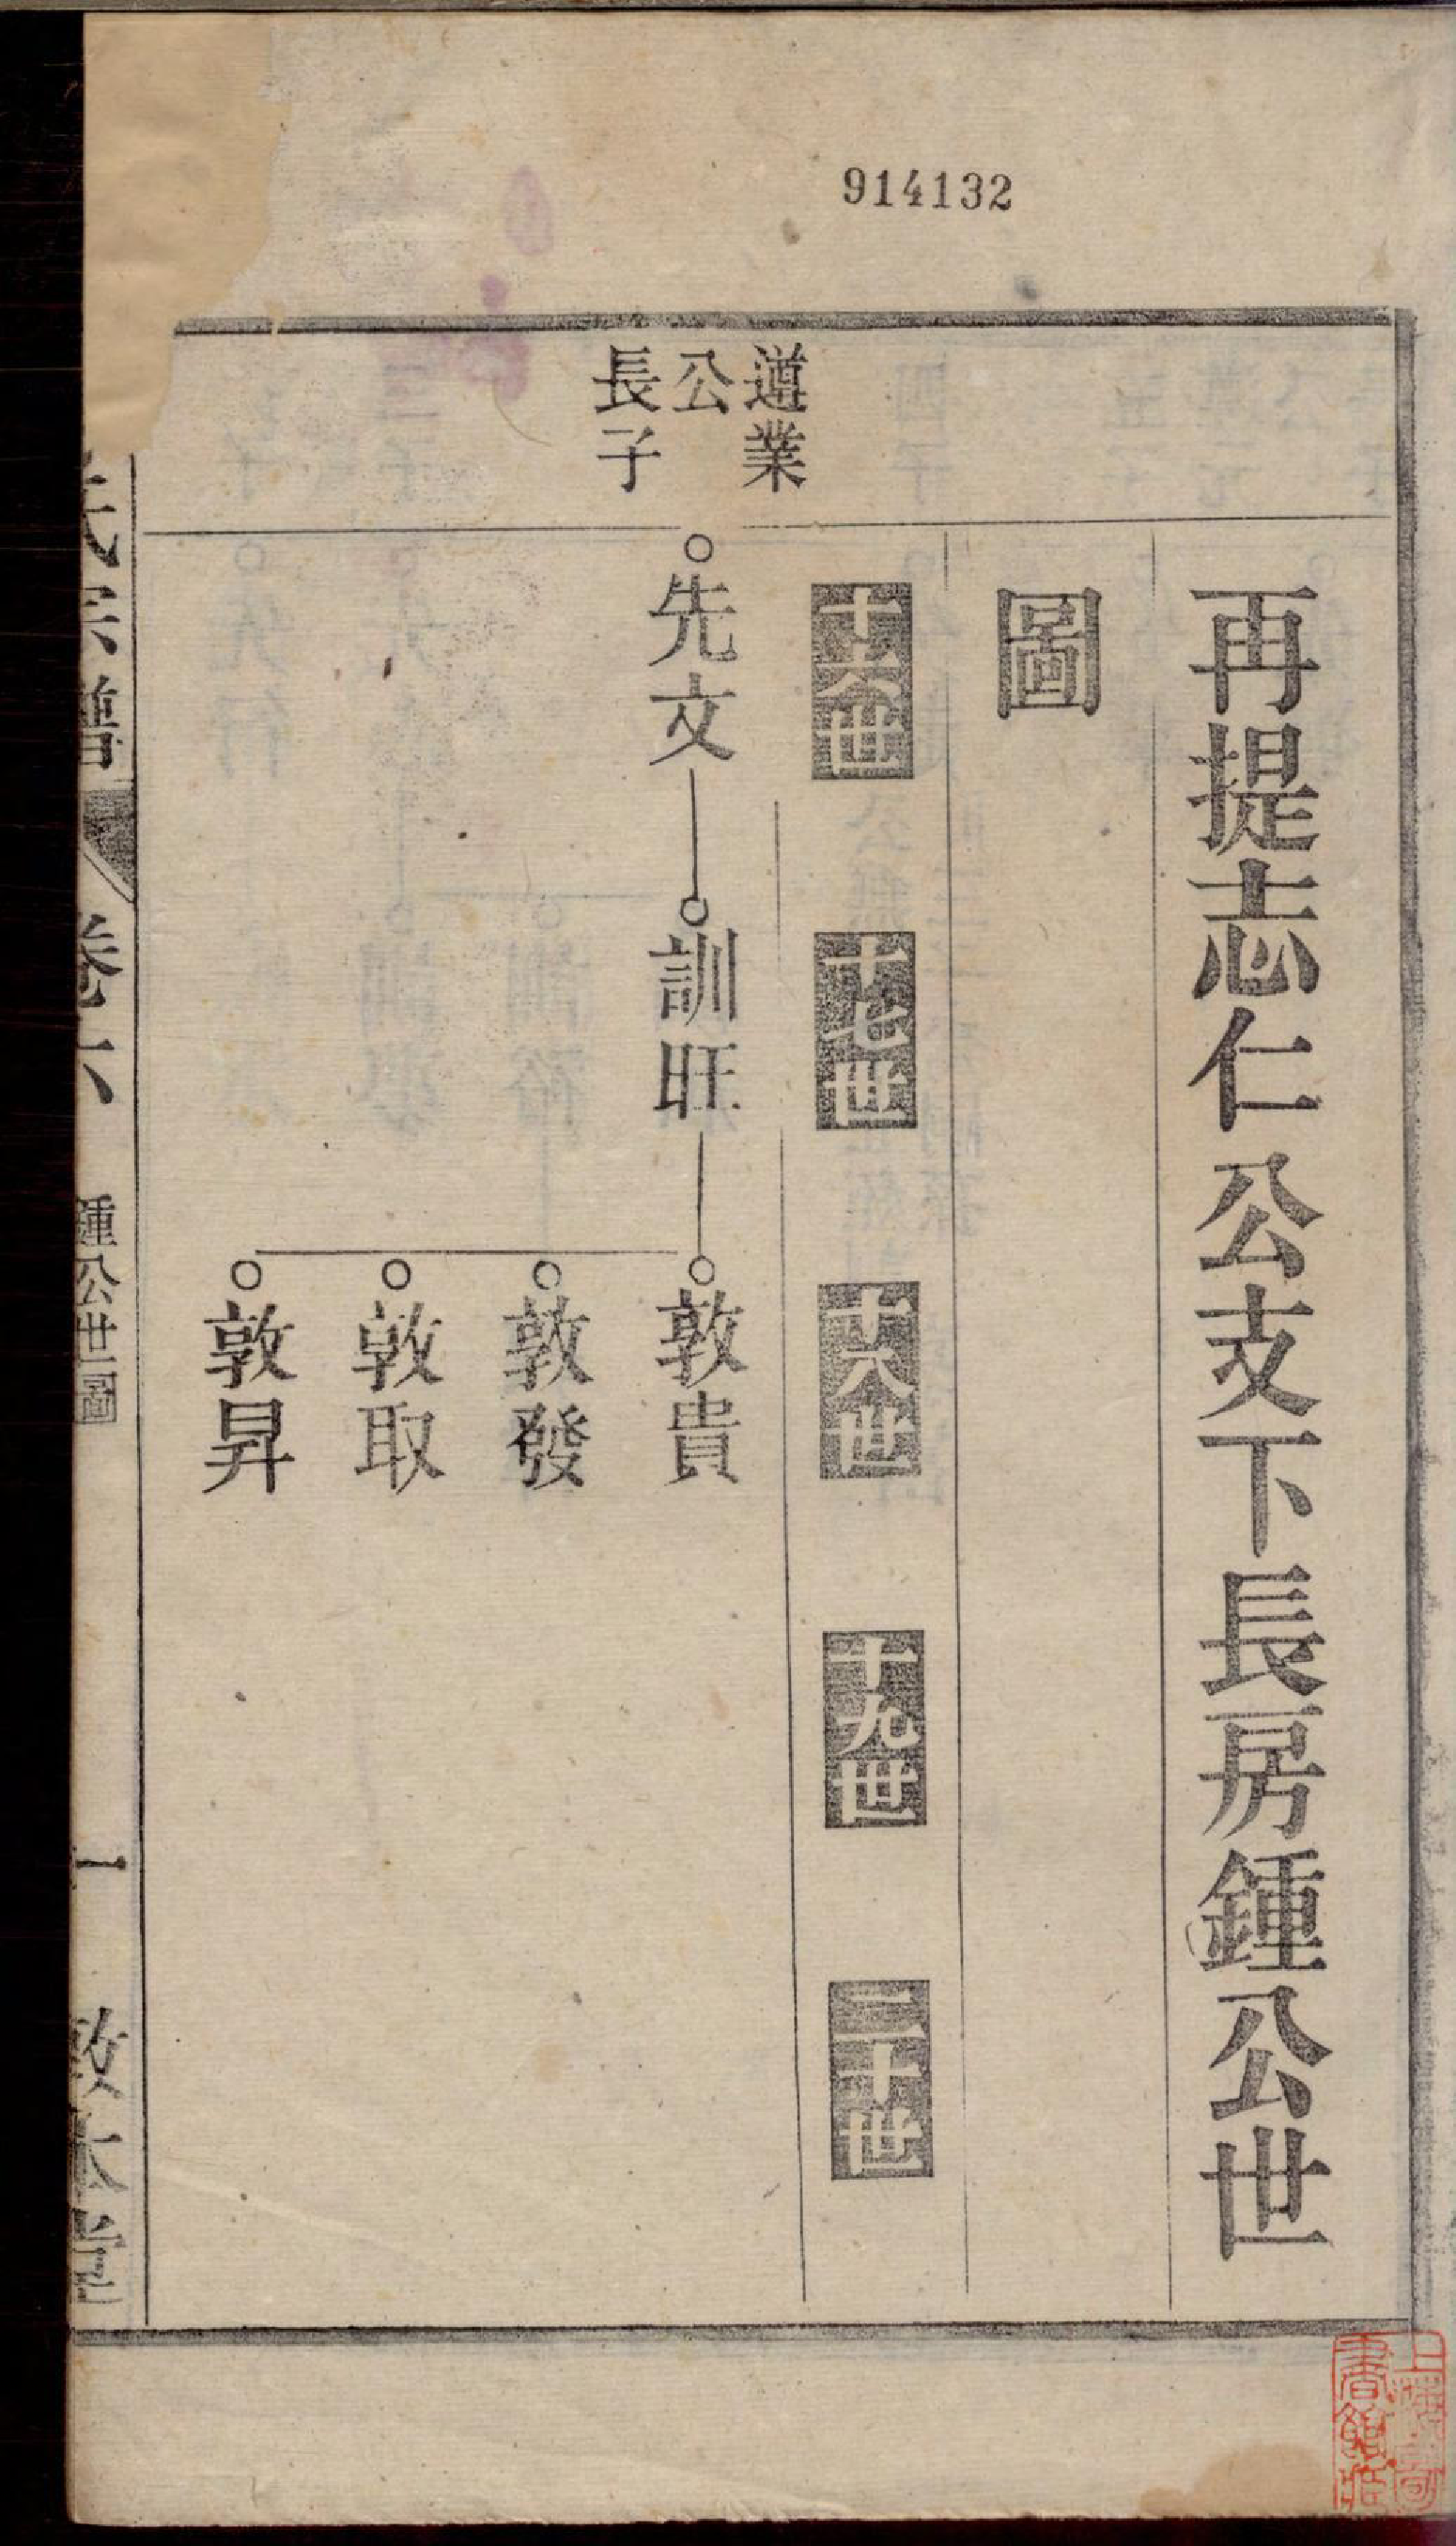 914132
再提志仁公支下長房鍾公世
圖
十六世
十七世
十八世
十九世
二十世
遵業
公
長子
先文
訓旺
敦貴
敦發
敦取
敦昇
氏宗譜
卷六
鍾公世圖
一
敦本堂
上海圖
書館藏